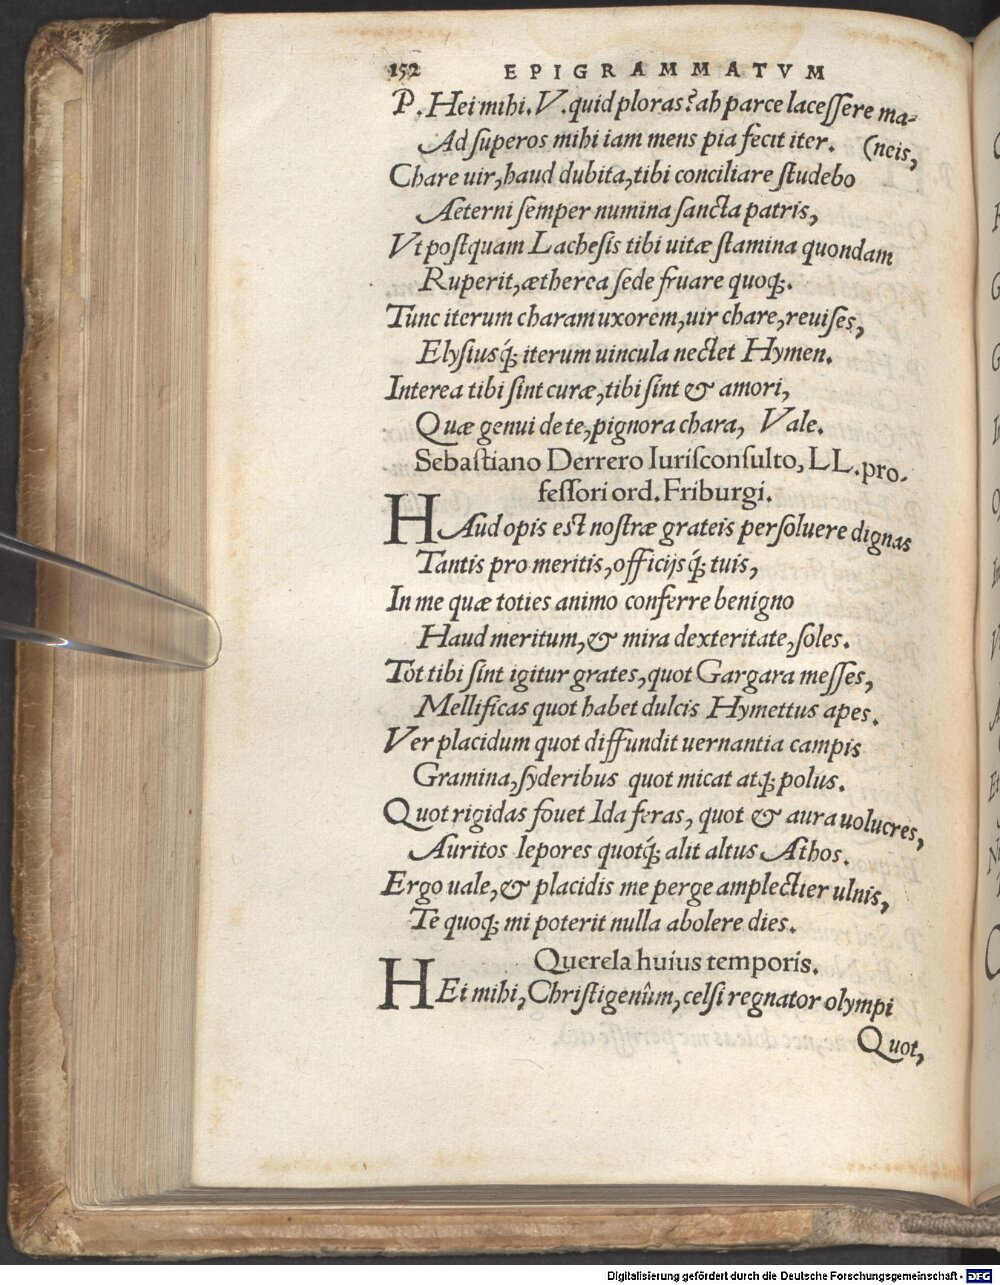 152 EPIGRAMMATVM
P. Hei mihi. V. quid ploras? ah parce lacessere ma-
Ad superos mihi iam mens pia fecit iter. (neis,
Chare uir, haud dubita, tibi conciliare studebo
Aeterni semper numina sancta patris,
Vt postquam Lachesis tibi uitæ stamina quondam
Ruperit, ætherea sede fruare quoq;.
Tunc iterum charam uxorem, uir chare, reuises,
Elysiusq́; iterum uincula nectet Hymen.
Interea tibi sint curæ, tibi sint & amori,
Quæ genui de te, pignora chara, Vale.
Sebastiano Derrero Iurisconsulto, LL. pro-
fessori ord. Friburgi.
HAud opis est nostræ grateis persoluere dignas
Tantis pro meritis, officijsq́; tuis,
In me quæ toties animo conferre benigno
Haud meritum, & mira dexteritate, soles.
Tot tibi sint igitur grates, quot Gargara messes,
Mellificas quot habet dulcis Hymettus apes.
Ver placidum quot diffundit uernantia campis
Gramina, syderibus quot micat atq; polus.
Quot rigidas fouet Ida feras, quot & aura uolucres,
Auritos lepores quotq́; alit altus Athos.
Ergo uale, & placidis me perge amplectier ulnis,
Te quoq; mi poterit nulla abolere dies.
Querela huius temporis.
HEi mihi, Christigenûm, celsi regnator olympi
Quot,
Digitalisierung gefördert durch die Deutsche Forschungsgemeinschaft - DFG